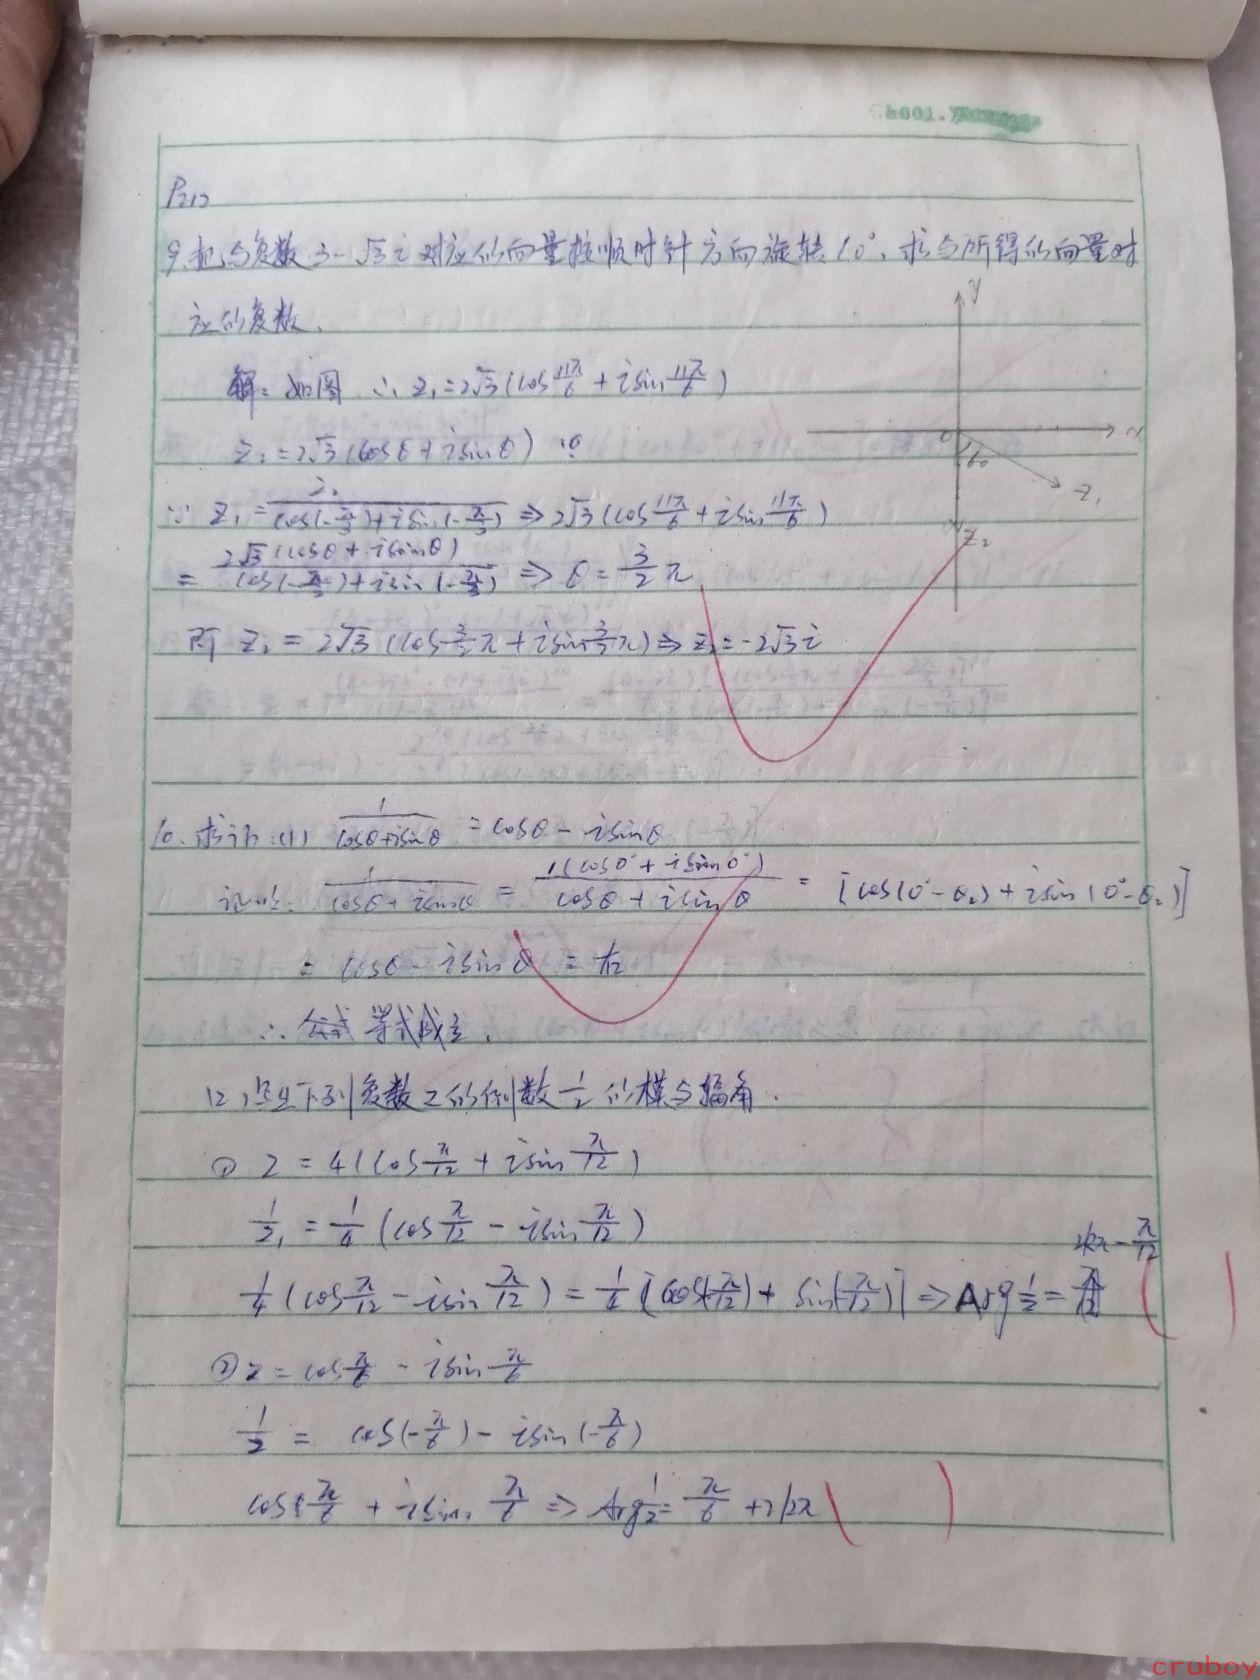 P212
9.把与复数3-√3i对应的向量按顺时针方向旋转60°,求与所得的向量对
应的复数.
y
解:如图 ∴ z₁=2√3(cos11π/6+isin11π/6)
z₂=2√3(cosθ+isinθ)
0 x
60
z₁
∵ z₁=z₂/(cos(-π/3)+isin(-π/3)) ⇒ 2√3(cos11π/6+isin11π/6)
z₂
=2√3(cosθ+isinθ)/(cos(-π/3)+isin(-π/3)) ⇒ θ=3/2π
所 z₂=2√3(cos3/2π+isin3/2π)⇒z₂=-2√3i
10.求证:(1) 1/(cosθ+isinθ)=cosθ-isinθ
证明: 1/(cosθ+isinθ)=1(cos0°+isin0°)/(cosθ+isinθ)=[cos(0°-θ₂)+isin(0°-θ₂)]
=cosθ-isinθ=右
∴ 等式成立.
(2)写出下列复数z的倒数1/z的模与辐角.
① z=4(cosπ/12+isinπ/12)
1/z₁=1/4(cosπ/12-isinπ/12)
2kπ-π/12
1/4(cosπ/12-isinπ/12)=1/4[cos(-π/12)+sin(-π/12)]⇒Arg1/z=
② z=cosπ/6-isinπ/6
1/z=cos(-π/6)-isin(-π/6)
cosπ/6+isinπ/6⇒Arg1/z=π/6+2kπ
cruboy